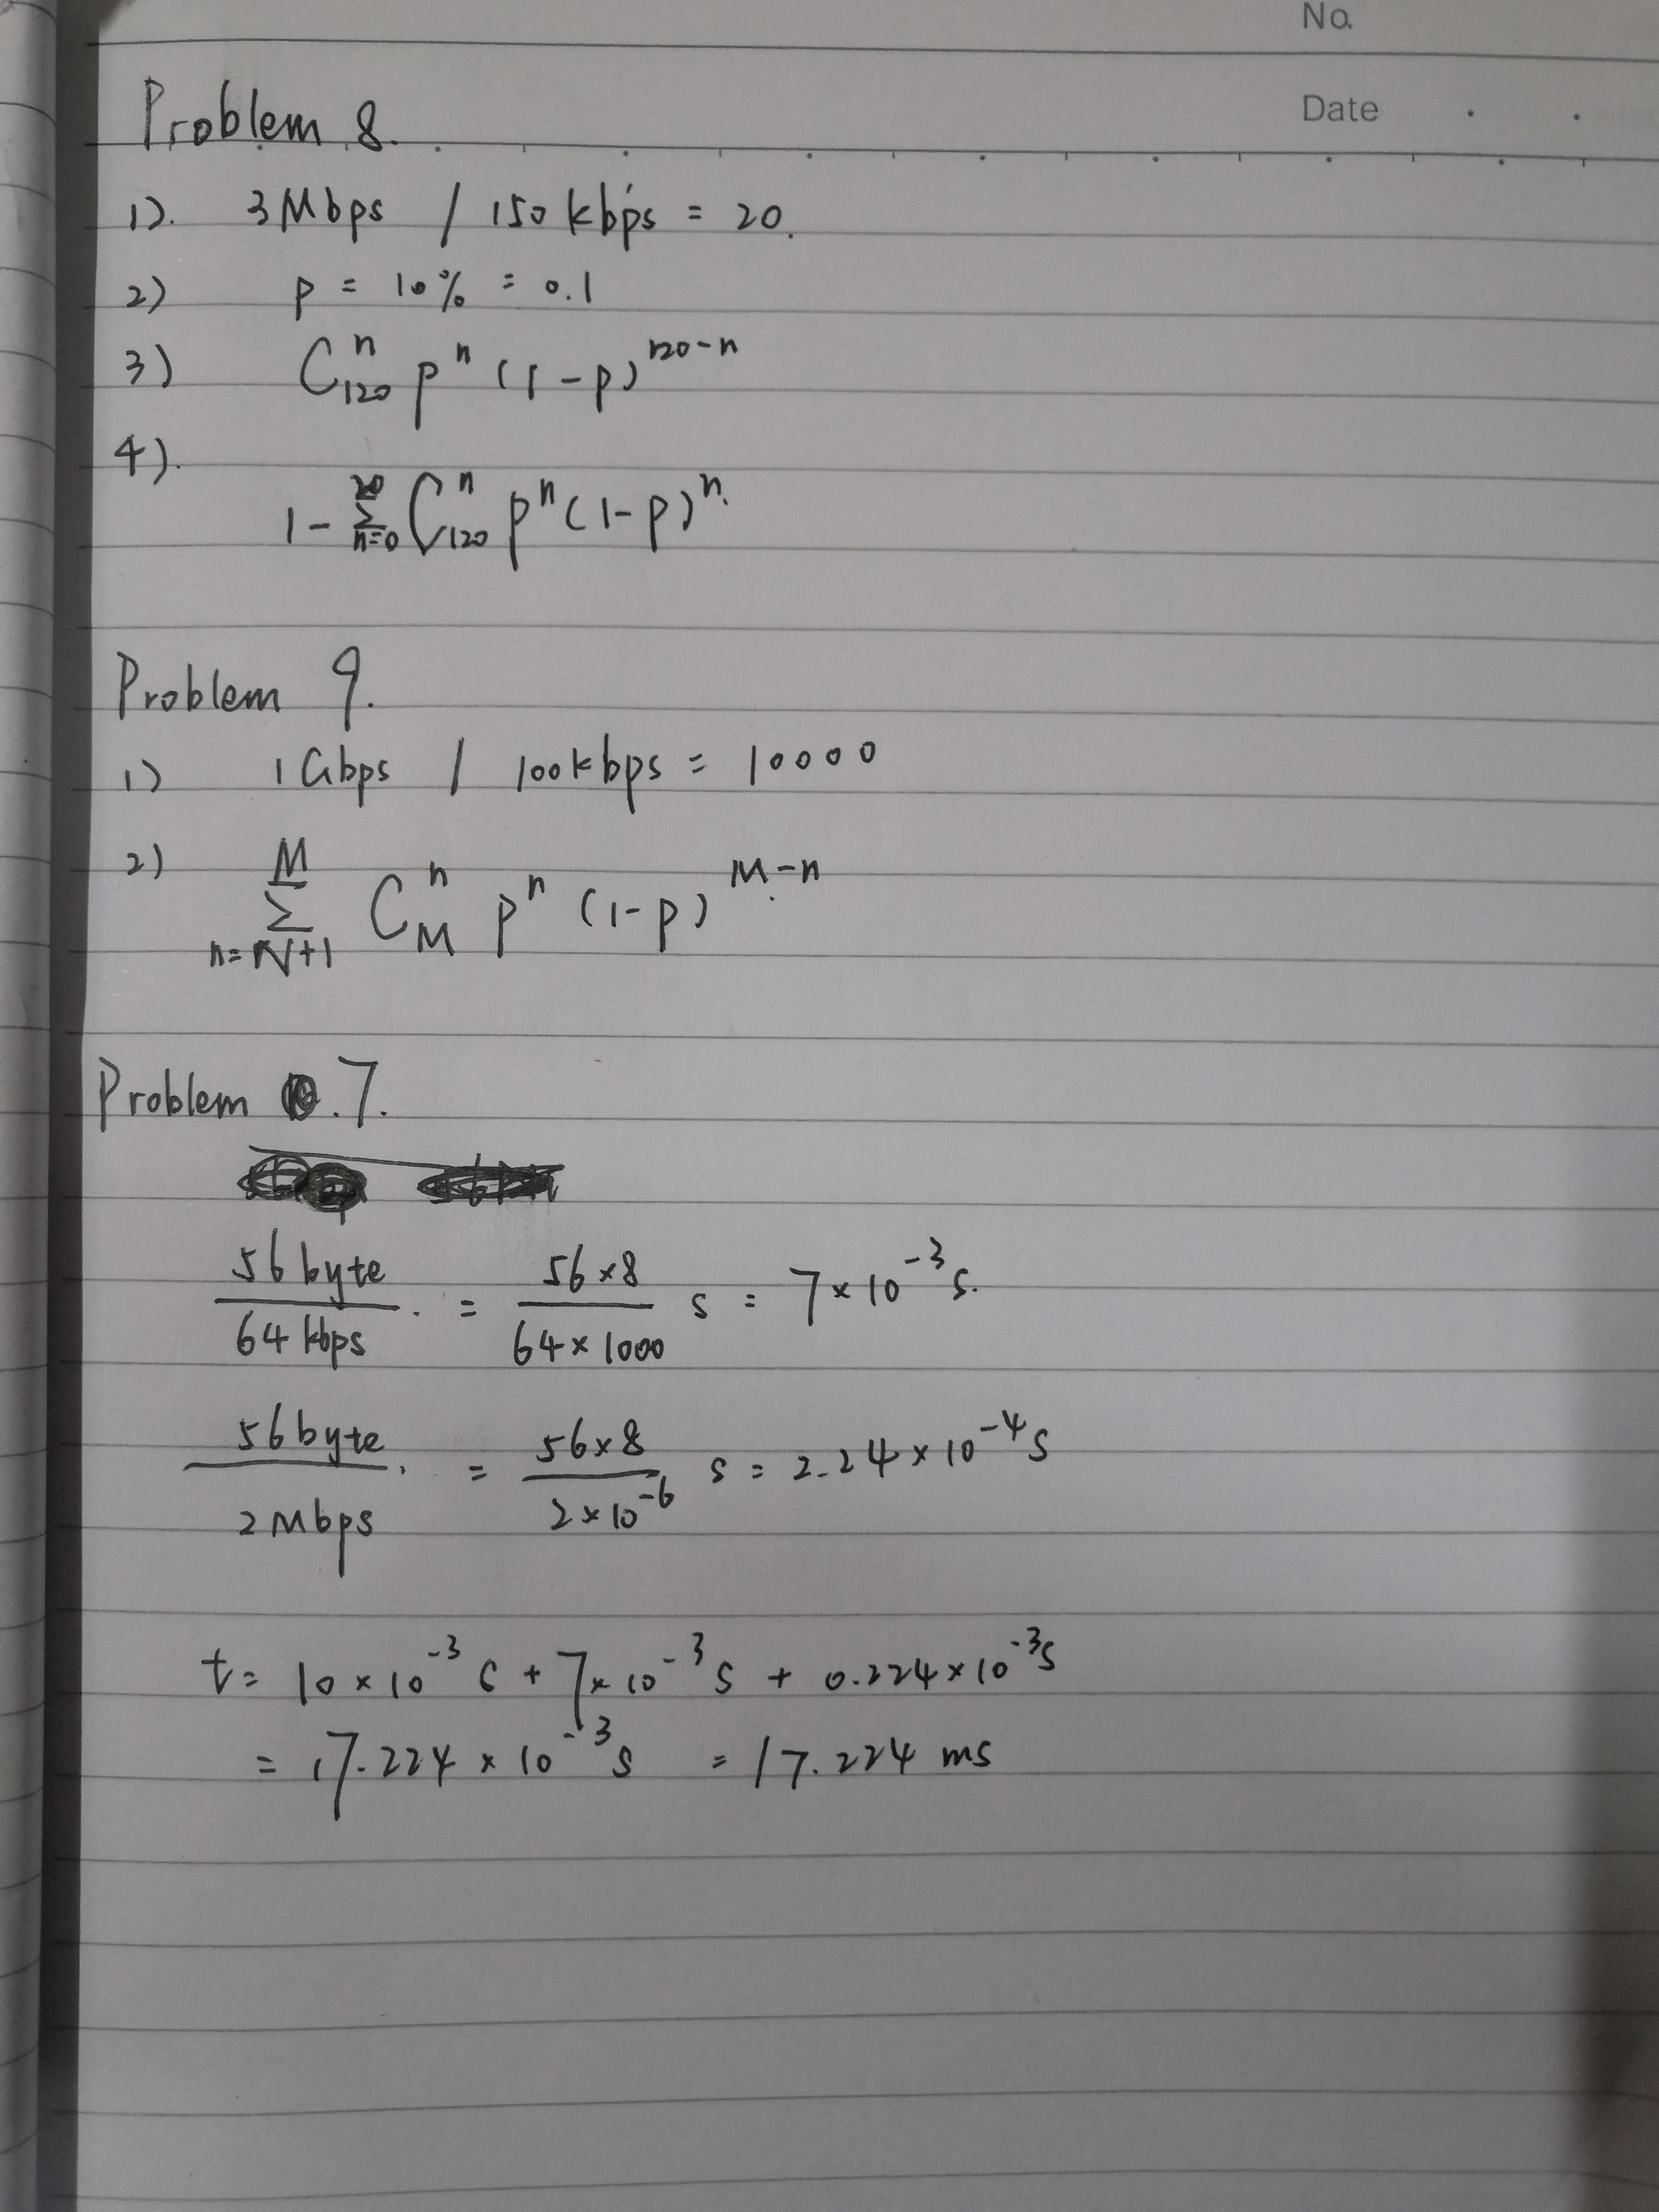 No.
Date
Problem 8.
1). 3Mbps / 150kbps = 20.
2) p = 10% = 0.1
3) C_{120}^{n} p^{n} (1-p)^{120-n}
4).
1 - \sum_{n=0}^{20} C_{120}^{n} p^{n} (1-p)^{n}.
Problem 9.
1) 1Gbps / 100kbps = 10000
2) \sum_{n=N+1}^{M} C_{M}^{n} p^{n} (1-p)^{M-n}
Problem .7.
\frac{56byte}{64kbps}. = \frac{56×8}{64×1000} s = 7×10^{-3} s.
\frac{56byte}{2Mbps}. = \frac{56×8}{2×10^{-6}} s = 2.24×10^{-4} s
t = 10×10^{-3} s + 7×10^{-3} s + 0.224×10^{-3} s
= 17.224×10^{-3} s = 17.224 ms